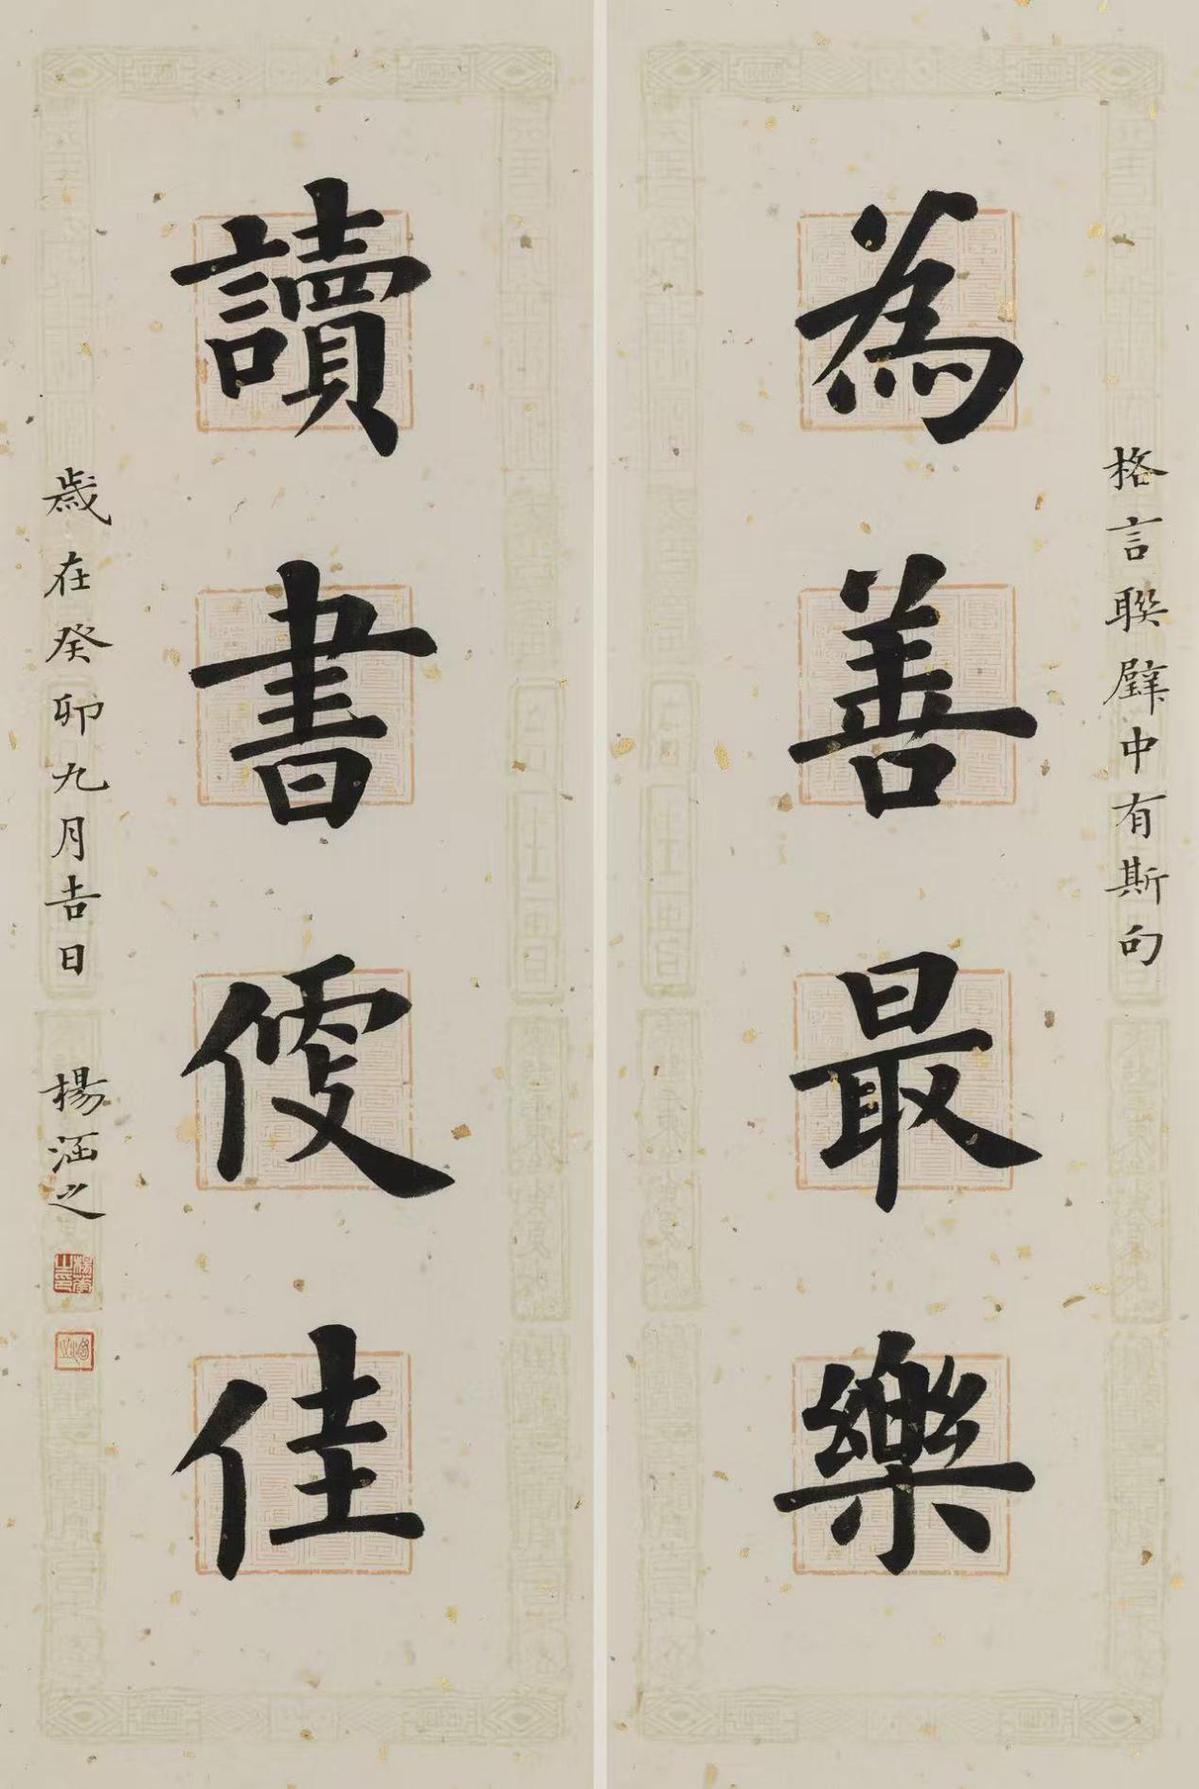 格言聯璧中有斯句
為善最樂
讀書便佳
歲在癸卯九月吉日
楊涵之